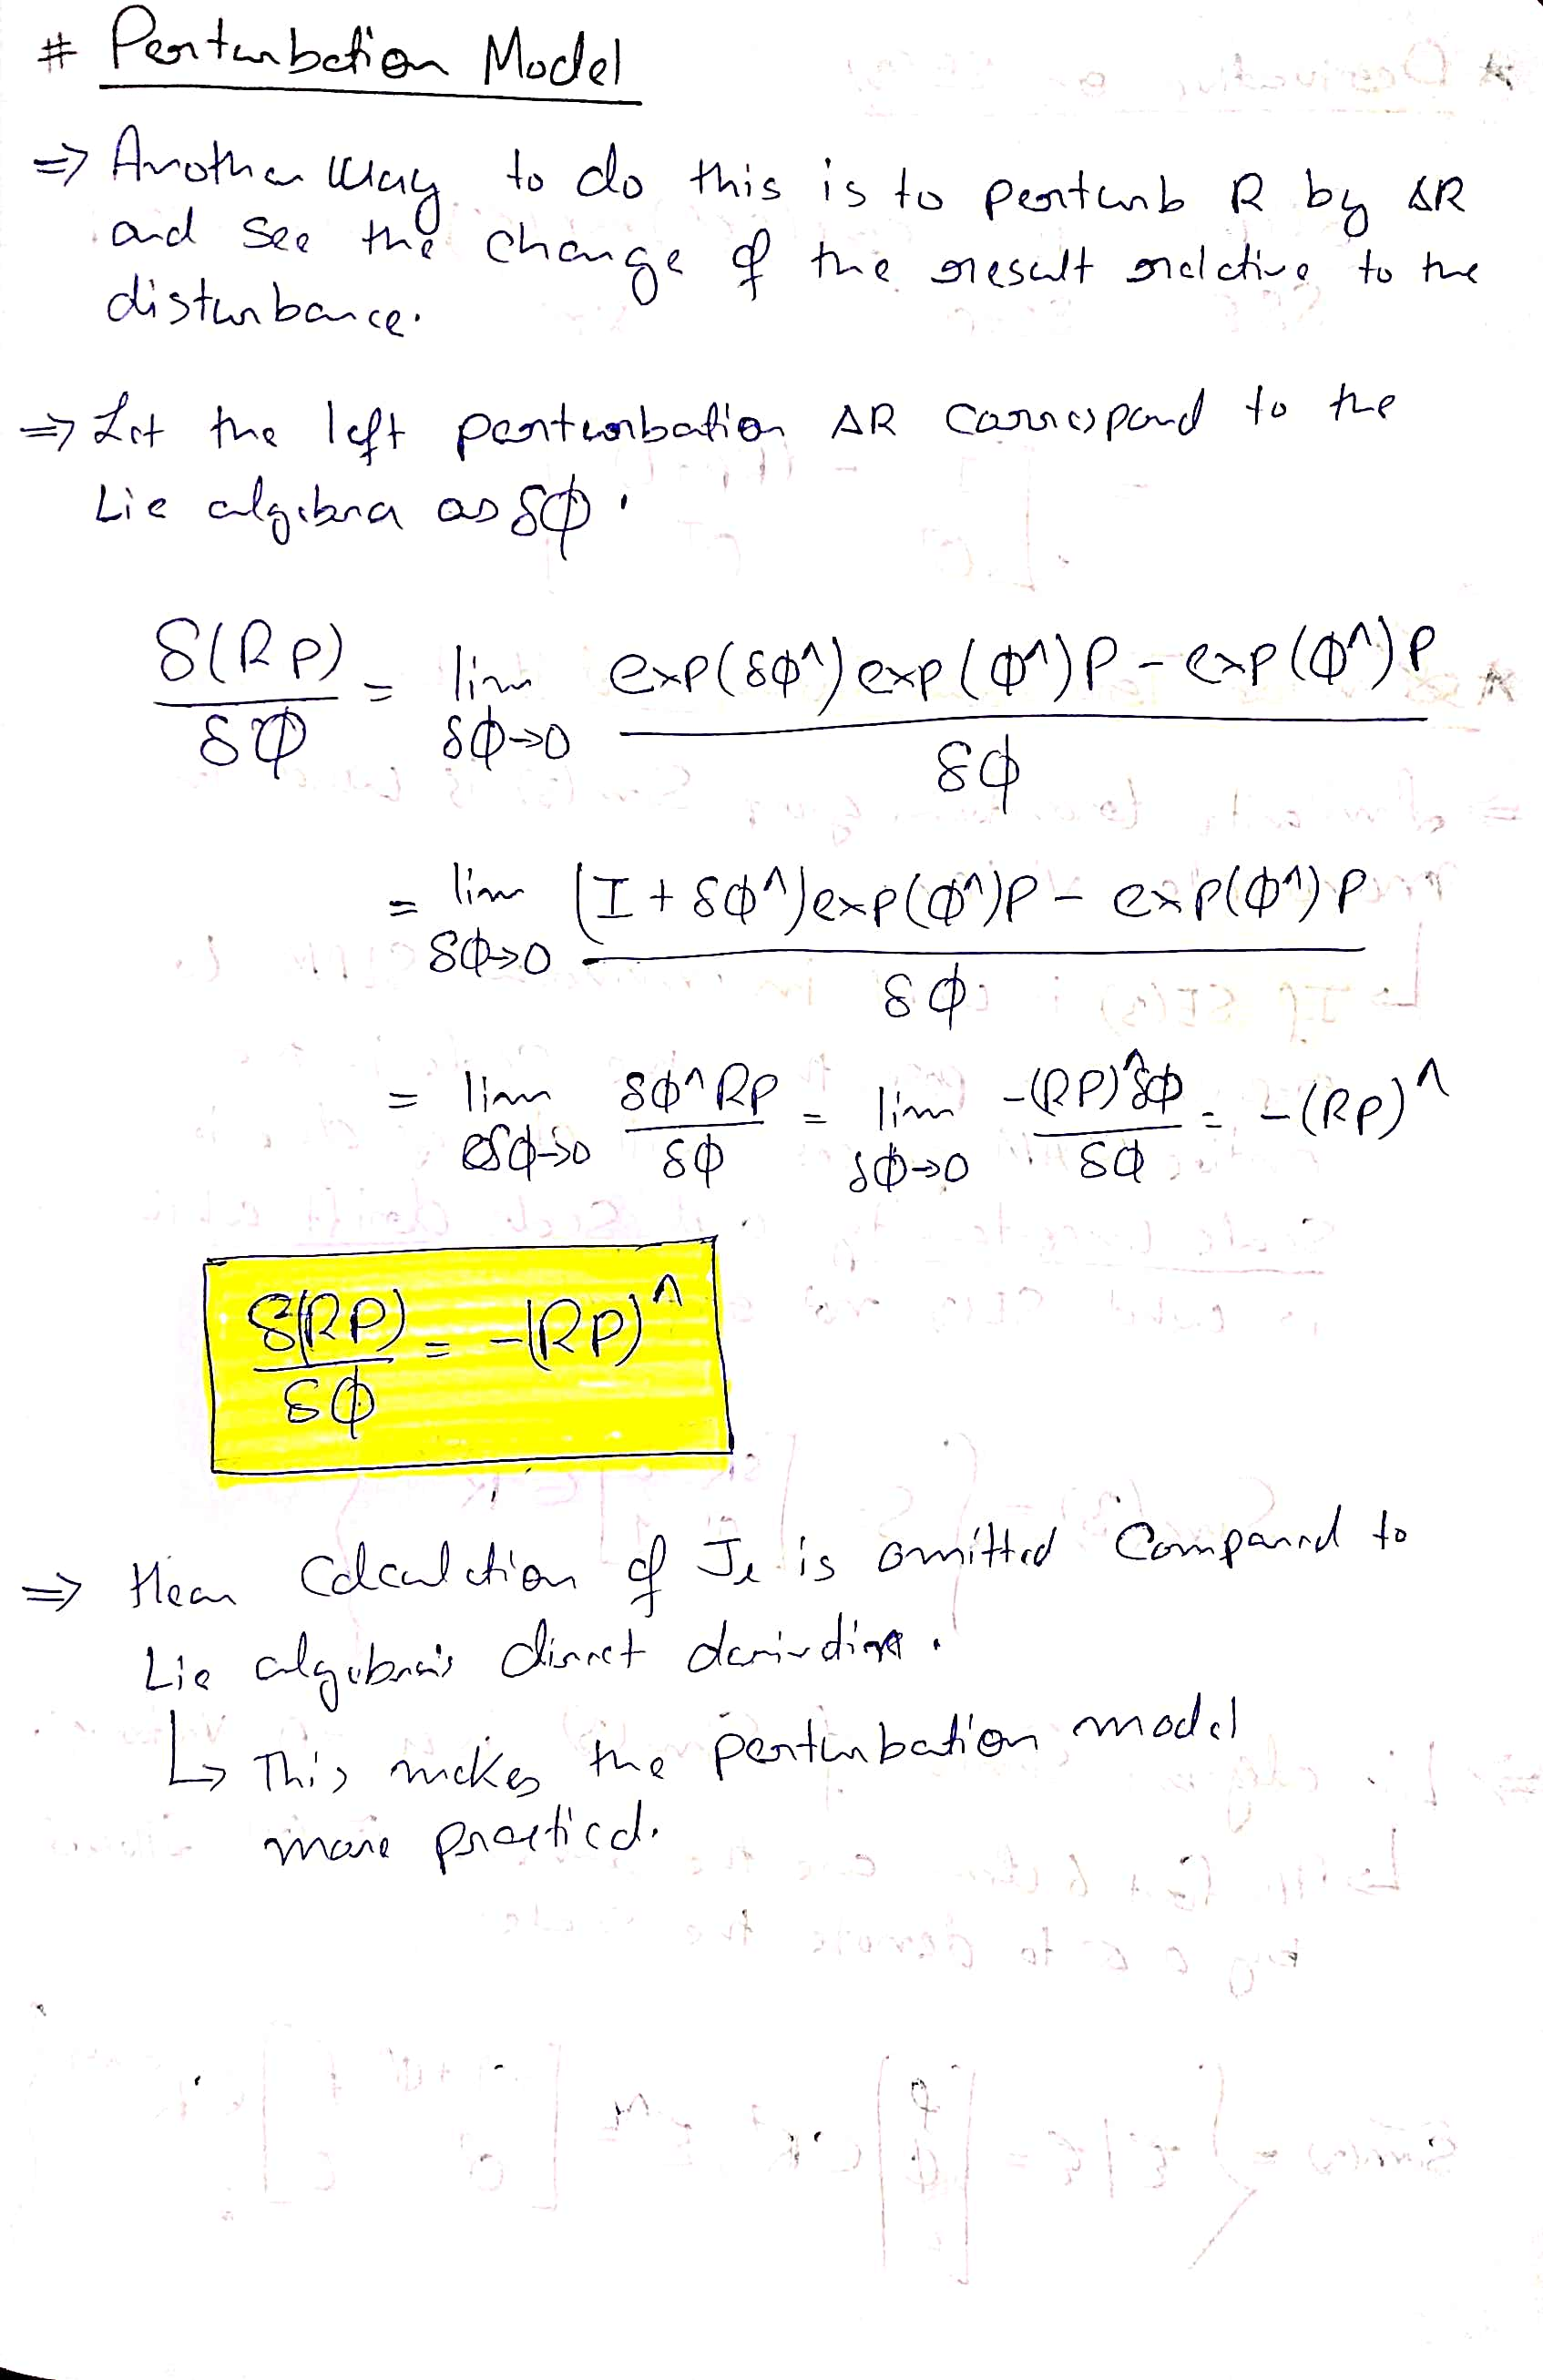 # Perturbation Model
⇒ Another way to do this is to perturb R by ΔR
and see the change of the result relative to the
disturbance.
⇒ Let the left perturbation ΔR correspond to the
Lie algebra as δϕ.
δ(Rp)/δϕ = lim δϕ→0 (exp(δϕ^) exp(ϕ^)p - exp(ϕ^)p)/δϕ
= lim δϕ→0 ((I + δϕ^)exp(ϕ^)p - exp(ϕ^)p)/δϕ
= lim δϕ→0 δϕ^Rp/δϕ = lim δϕ→0 -(Rp)^δϕ/δϕ = -(Rp)^
δ(Rp)/δϕ = -(Rp)^
⇒ Hear Calculation of Jl is omitted Compared to
Lie algebra's direct derivative.
↳ This makes the perturbation model
more practical.